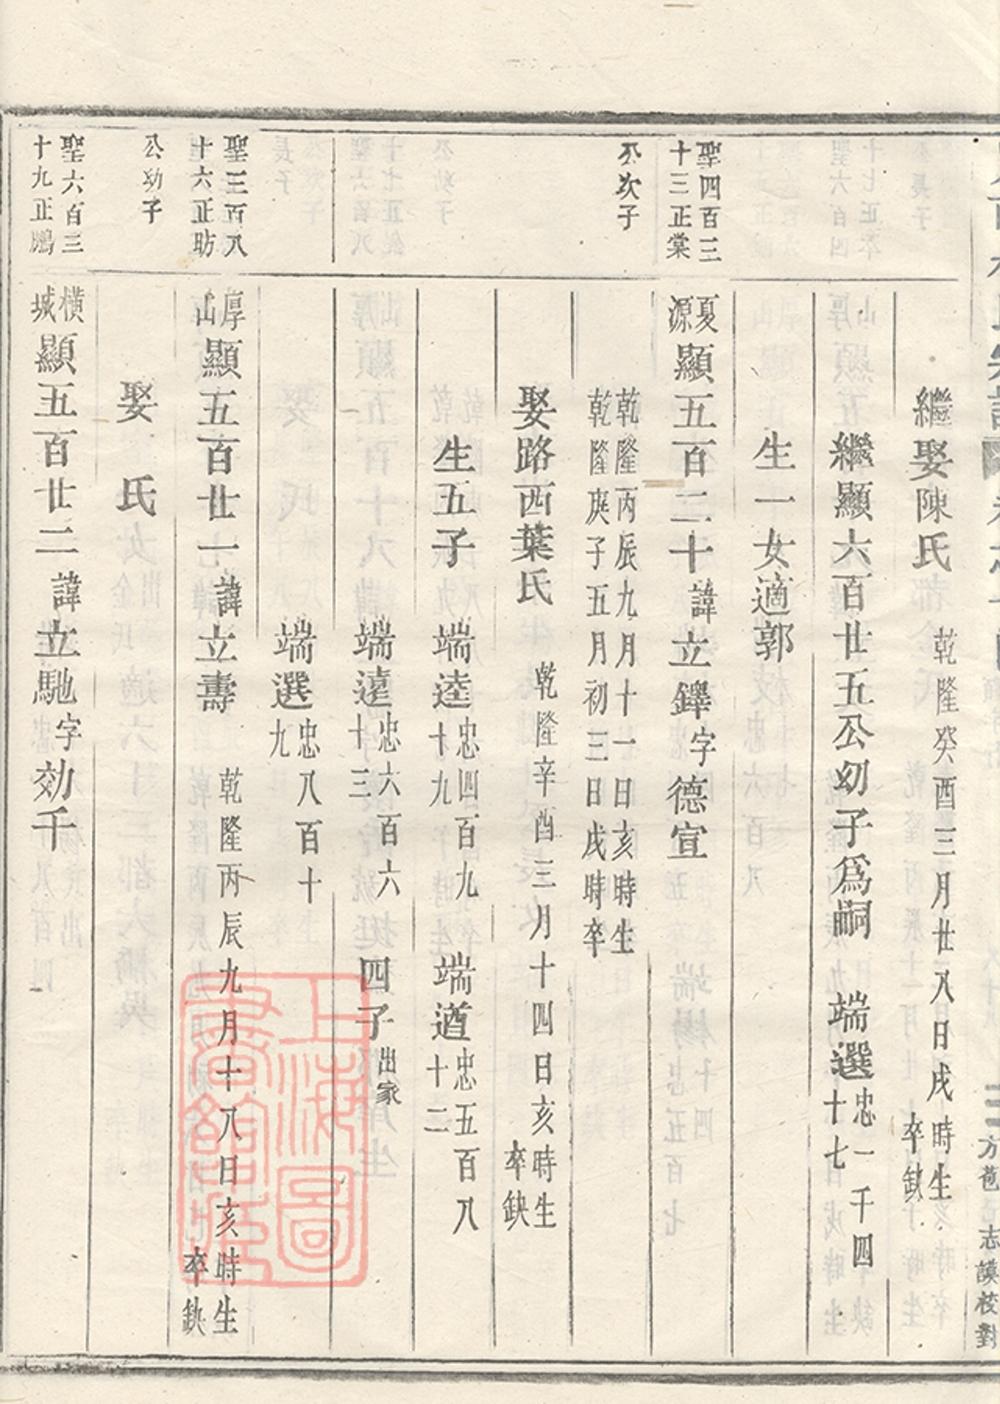 三
方苞 志謨校對
繼娶陳氏 乾隆癸酉三月廿八日戌時生
卒缺
繼顯六百廿五公幼子爲嗣 端選 忠一千四
十七
生一女適郭
聖四百三
十三正棠
公次子
夏
源
顯五百二十諱立鐸字德宣
乾隆丙辰九月十一日亥時生
乾隆庚子五月初三日戌時卒
娶路西葉氏 乾隆辛酉三月十四日亥時生
卒缺
生五子 端逵 忠四百九
十九
端遒 忠五百八
十二
端遠 忠六百六
十三
四子出家
端選 忠八百十
九
聖三百八
十六正昉
公幼子
厚
山
顯五百廿一諱立壽 乾隆丙辰九月十八日亥時生
卒缺
娶 氏
聖六百三
十九正鵬
橫
城
顯五百廿二諱立馳字効千
上海圖
書館藏